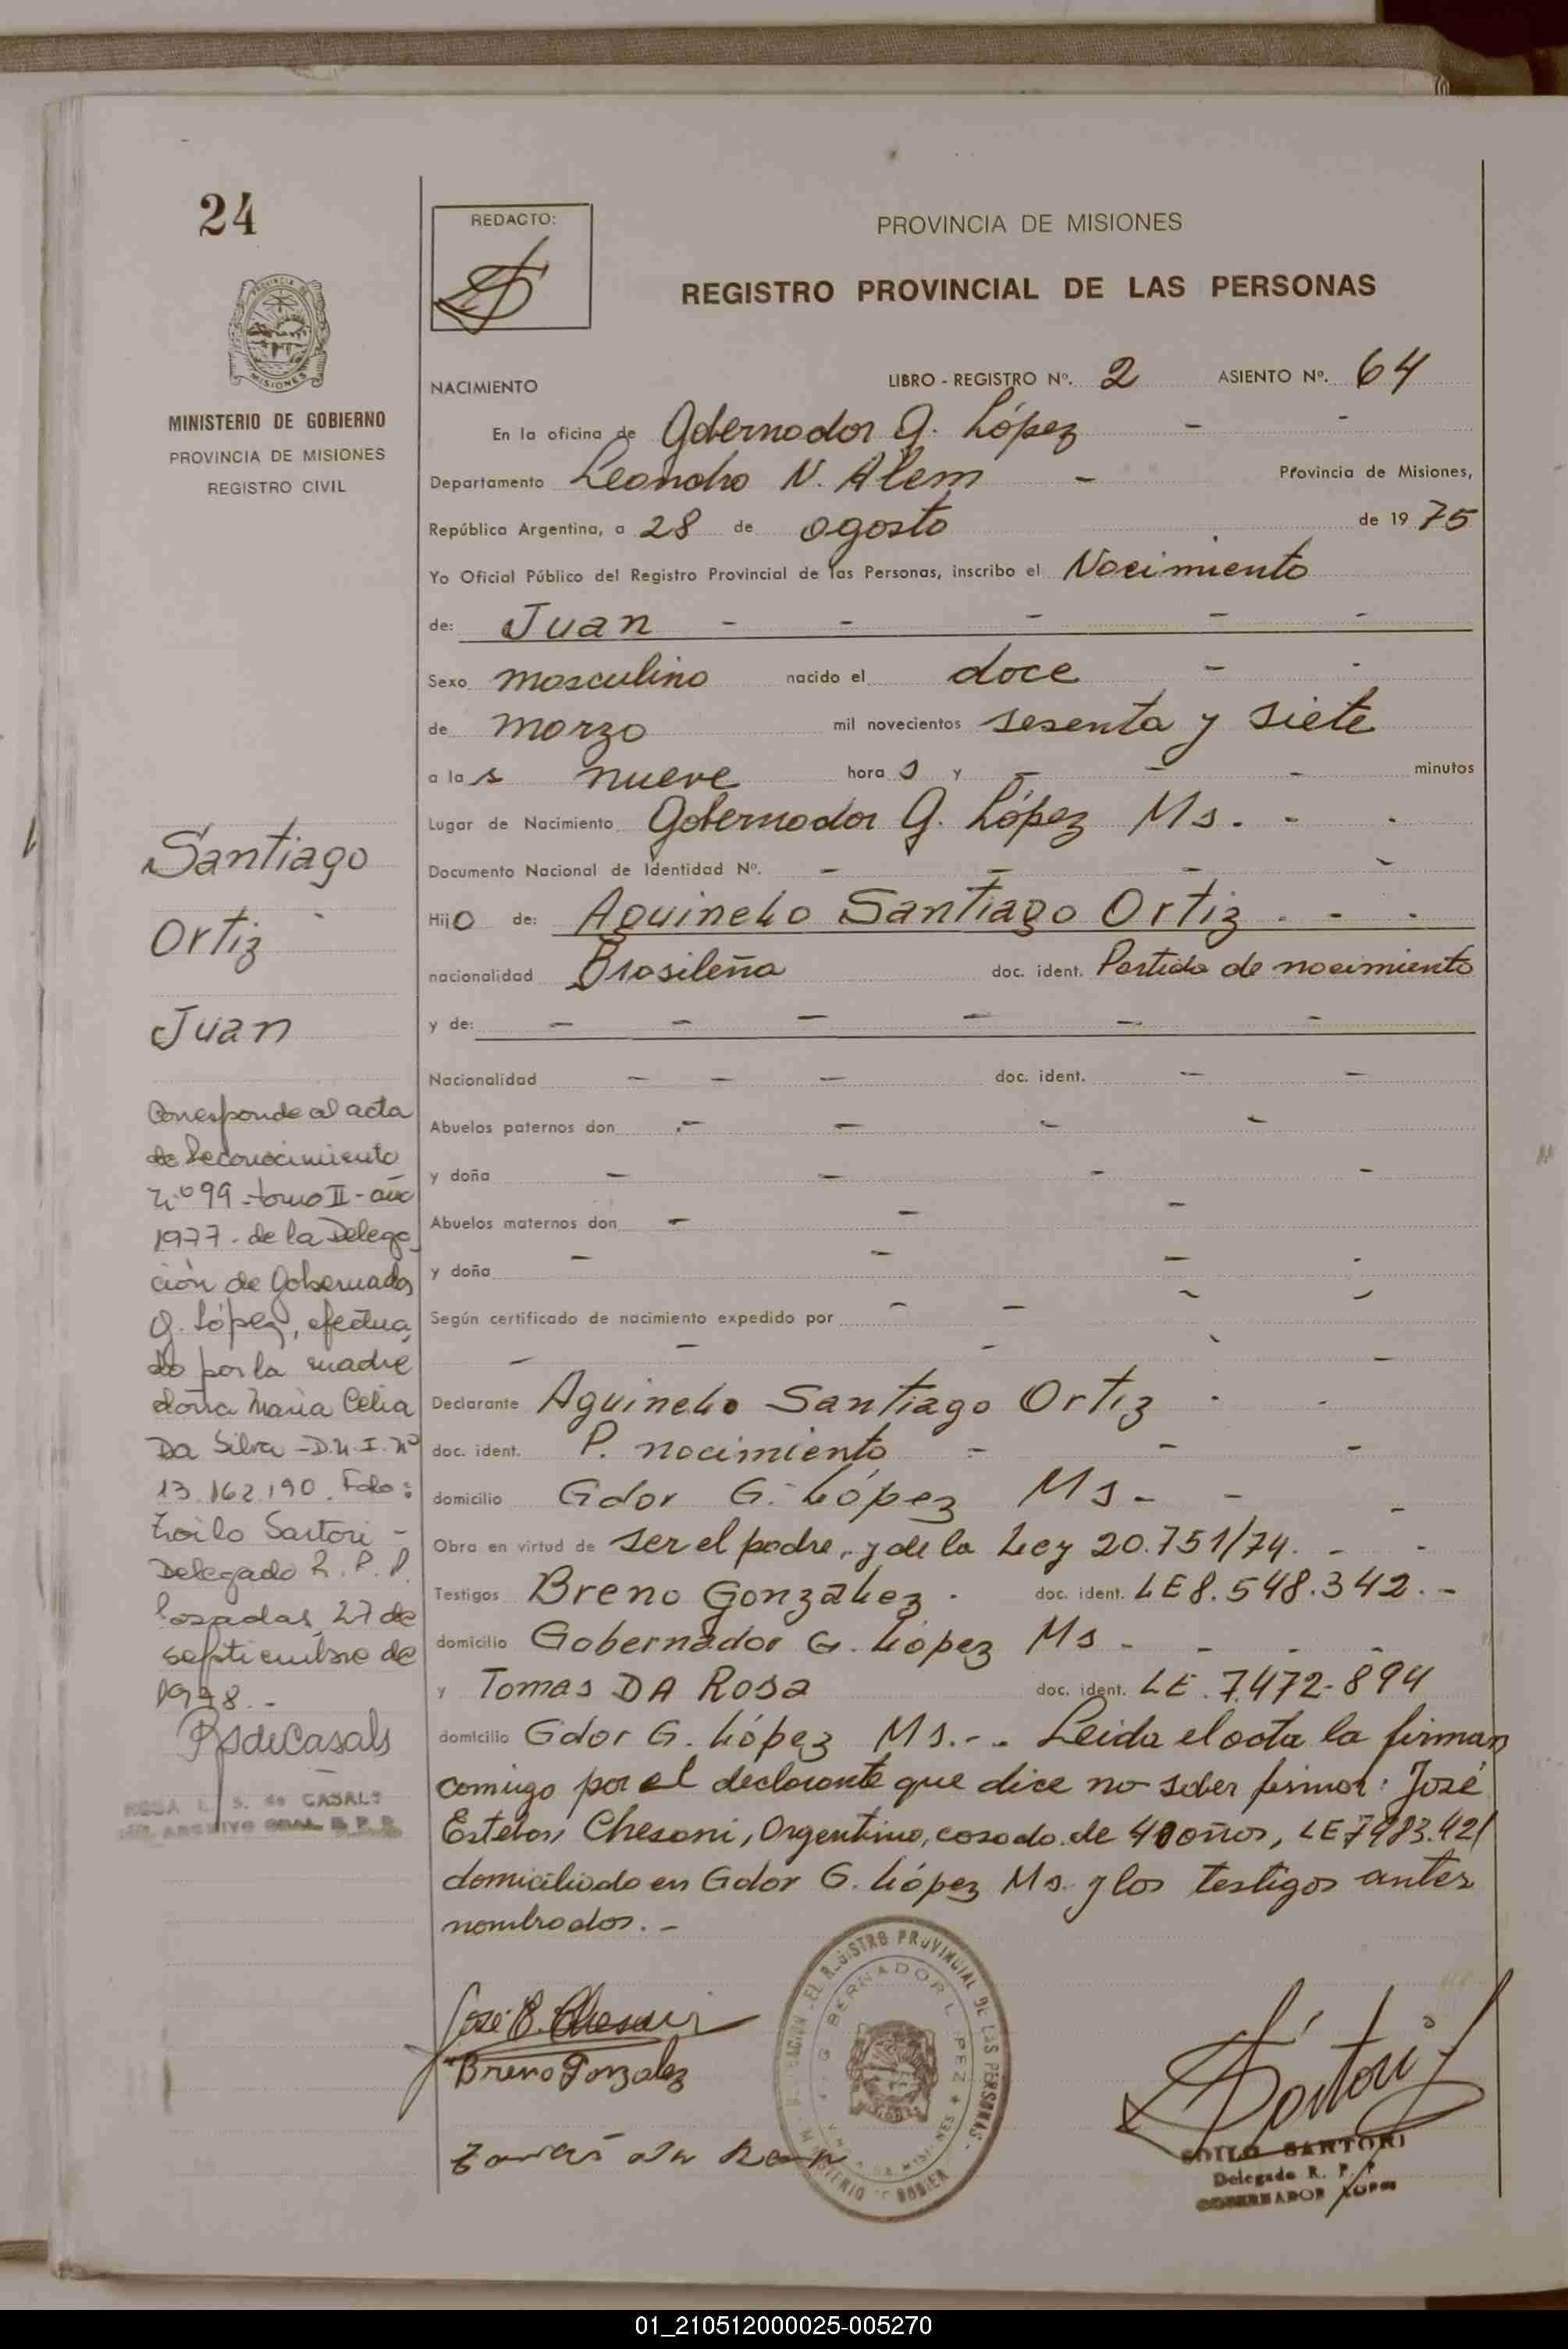 24
MINISTERIO DE GOBIERNO
PROVINCIA DE MISIONES
REGISTRO CIVIL
REDACTO:
PROVINCIA DE MISIONES
REGISTRO PROVINCIAL DE LAS PERSONAS
NACIMIENTO LIBRO - REGISTRO Nº. 2 ASIENTO Nº. 64
En la oficina de Gobernador G. López -  -
Departamento Leandro N. Alem - Provincia de Misiones,
República Argentina, a 28 de agosto de 19 75
Yo Oficial Público del Registro Provincial de las Personas, inscribo el Nacimiento
de: Juan - - - - -
Sexo masculino nacido el doce - -
de marzo mil novecientos sesenta y siete
a las nueve horas y - - - minutos
Lugar de Nacimiento Gobernador G. López Ms. - -
Documento Nacional de Identidad Nº. - - - -
Hijo de: Aguinelo Santiago Ortiz . - .
nacionalidad Brasileña doc. ident. Partida de nacimiento
y de: - - - - - -
Nacionalidad - - - doc. ident. - -
Abuelos paternos don - - - -
y doña - - - -
Abuelos maternos don - - -
y doña - - - -
Según certificado de nacimiento expedido por - - - -
- - - - -
Declarante Aguinelo Santiago Ortiz - -
doc. ident. P. nacimiento - - -
domicilio Gdor G. López Ms - - -
Obra en virtud de ser el padre, y de la Ley 20.751/74. - -
Testigos Breno Gonzalez - doc. ident. LE 8.548.342. -
domicilio Gobernador G. López Ms - - - -
y Tomas DA Rosa doc. ident. LE. 7.472-894
domicilio Gdor G. López Ms. - . Leida el acta la firman
comigo por el declarante que dice no saber firmar: José
Esteban Chesani, Argentino, casado de 40 años, LE 7983.421
domiciliado en Gdor G. López Ms. y los testigos antes
nombrados. -
Santiago
Ortiz
Juan
Corresponde al acta
de Reconocimiento
Nº 99 - tomo II - año
1977. de la Delega
ción de Gobernador
G. López, efectua
do por la madre
doña Maria Celia
Da Silva - D.N.I. Nº
13.162.190. Fdo:
Zoilo Sartori -
Delegado R. P. P.
Posadas, 27 de
septiembre de
1978. -
RSdeCasals
ROSA L. S. de CASALS
ARCHIVO GRAL R. P. P.
José E. Chesani
Breno Gonzalez
Tomás da Rosa
DELEGACION DEL REGISTRO PROVINCIAL DE LAS PERSONAS - MINISTERIO DE GOBIERNO
GOBERNADOR LOPEZ
Sartori
ZOILO SARTORI
Delegado R. P. P.
GOBERNADOR LOPEZ
01_210512000025-005270